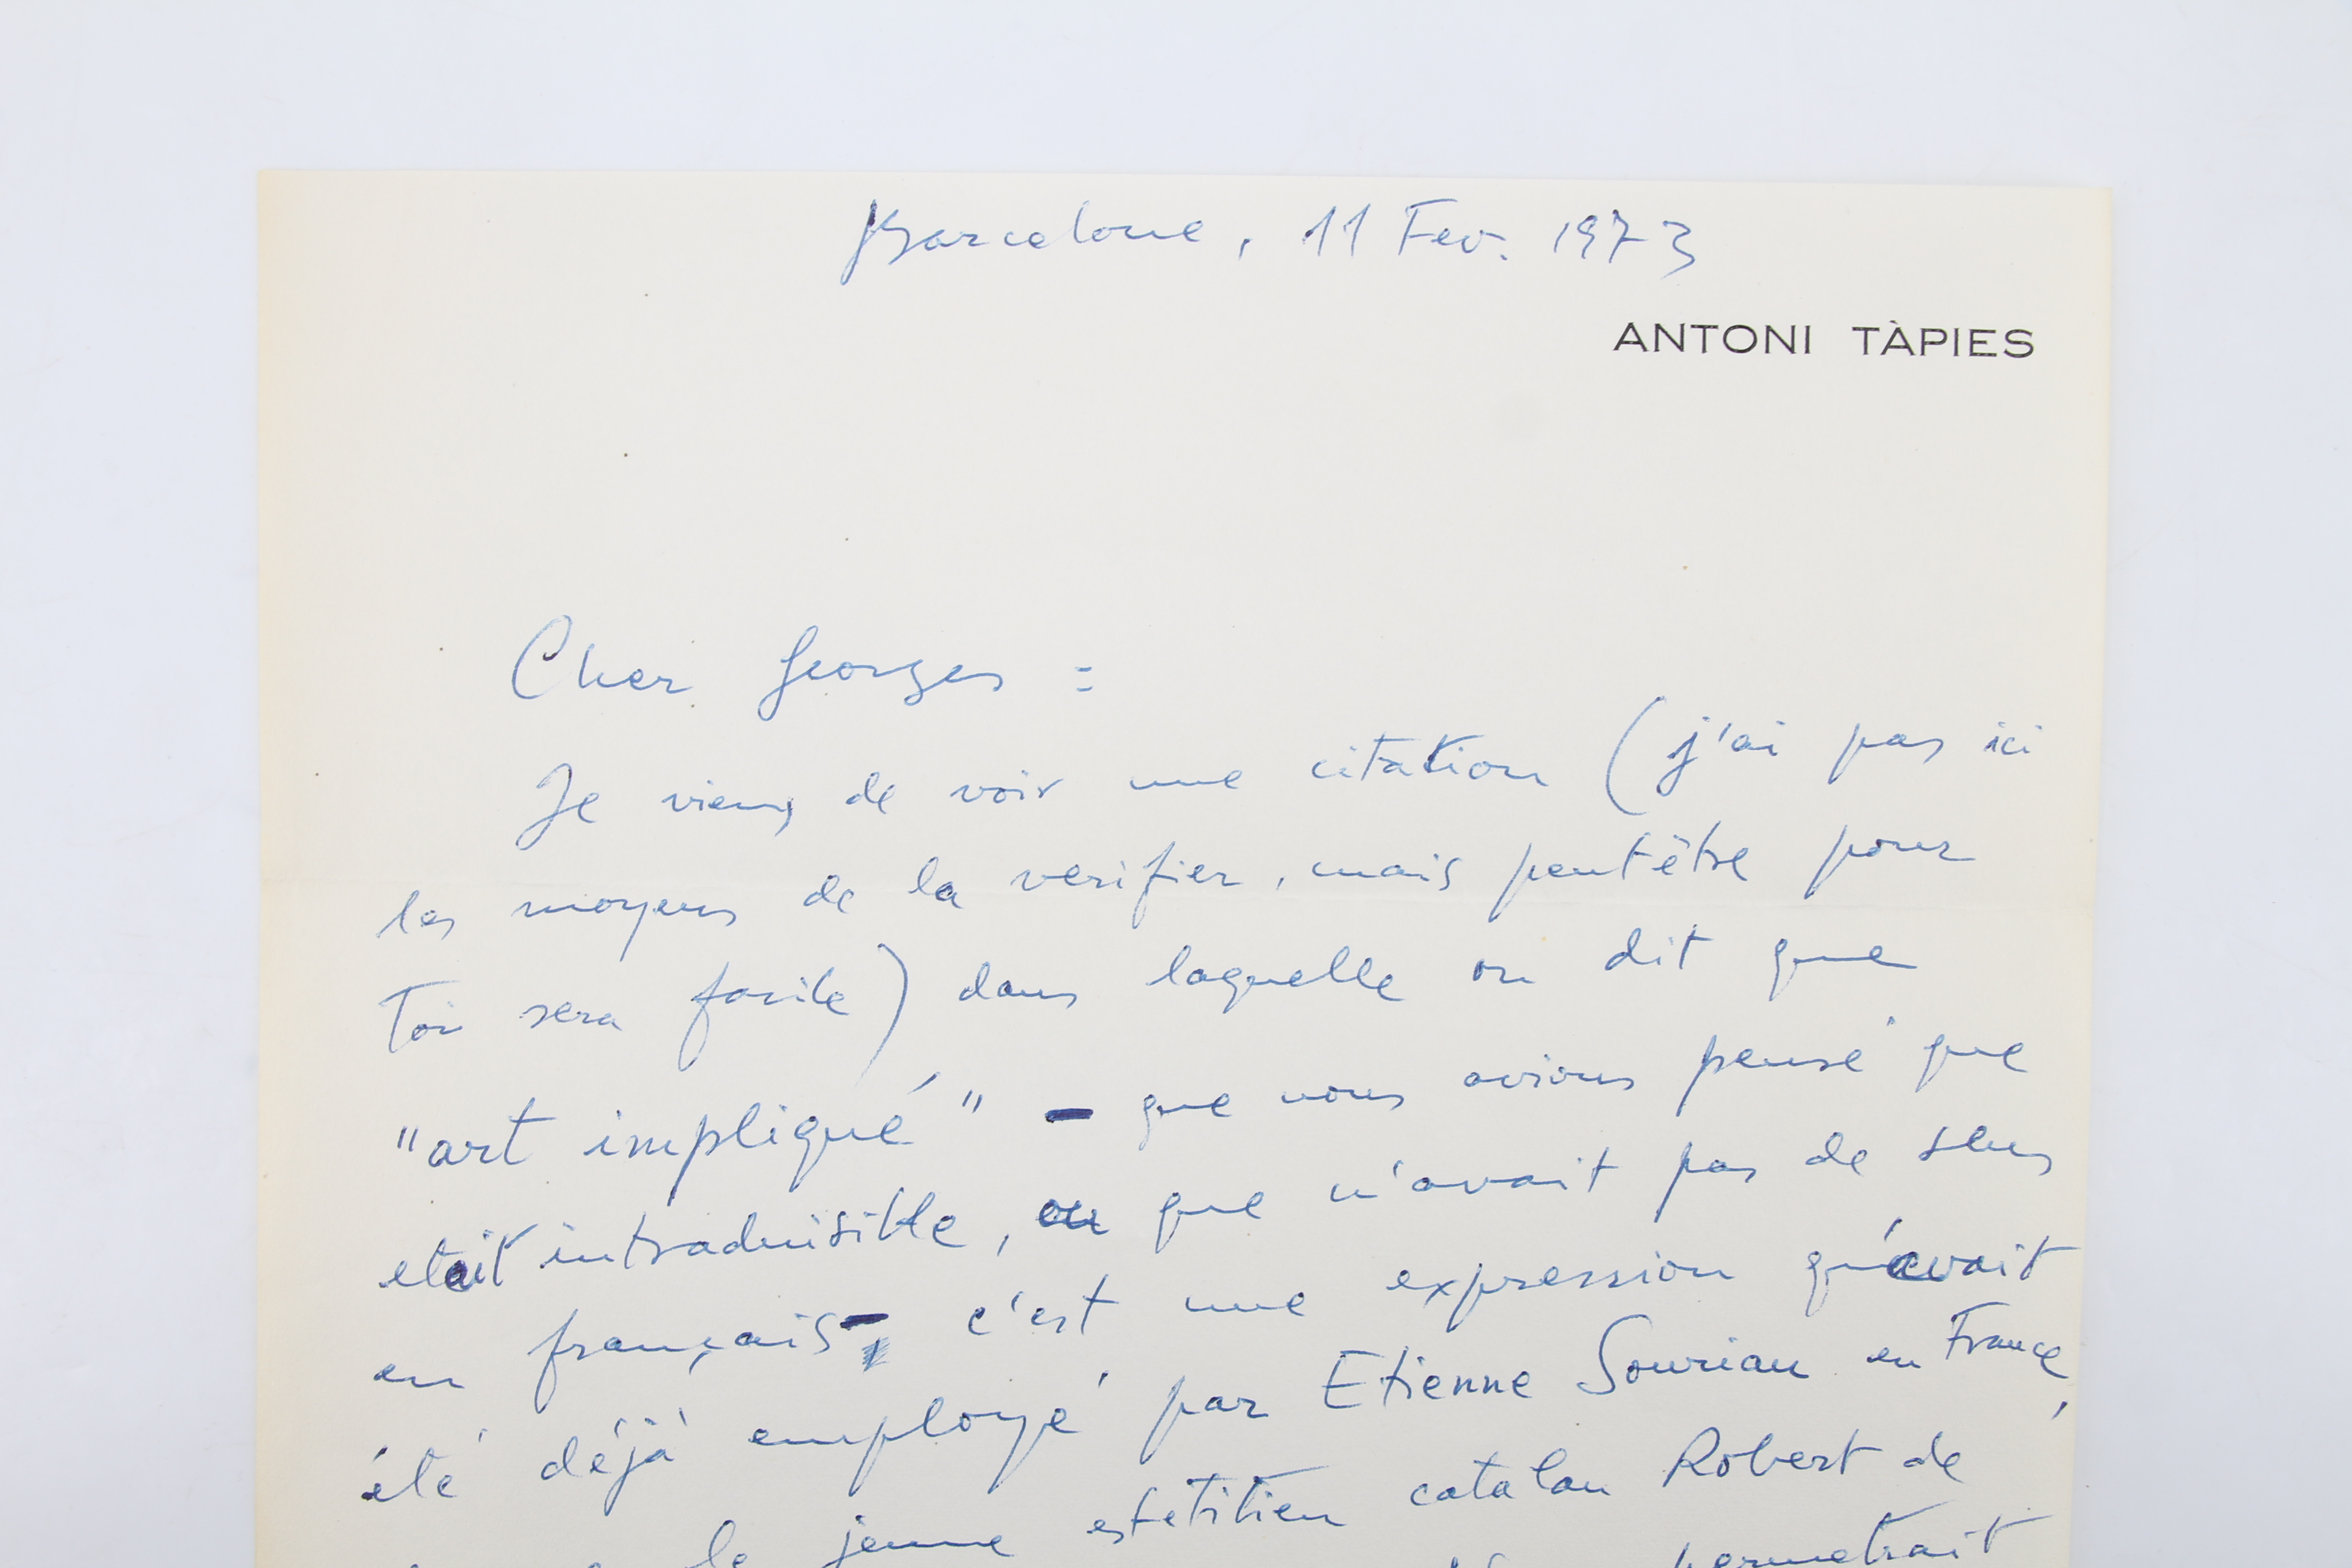 Barcelone, 11 Fev. 1973
ANTONI TÀPIES
Cher Georges :
Je viens de voir une citation (j'ai pas ici
les moyens de la verifier, mais peutêtre pour
Toi sera facile) dans laquelle on dit que
"art impliqué" - que nous avions pensé que
etait intraduisible, ou que n'avait pas de sens
en français - c'est une expression qu'avait
été déjà employé par Etienne Souriau en France,
le jeune estétitien catalan Robert de
permetrait